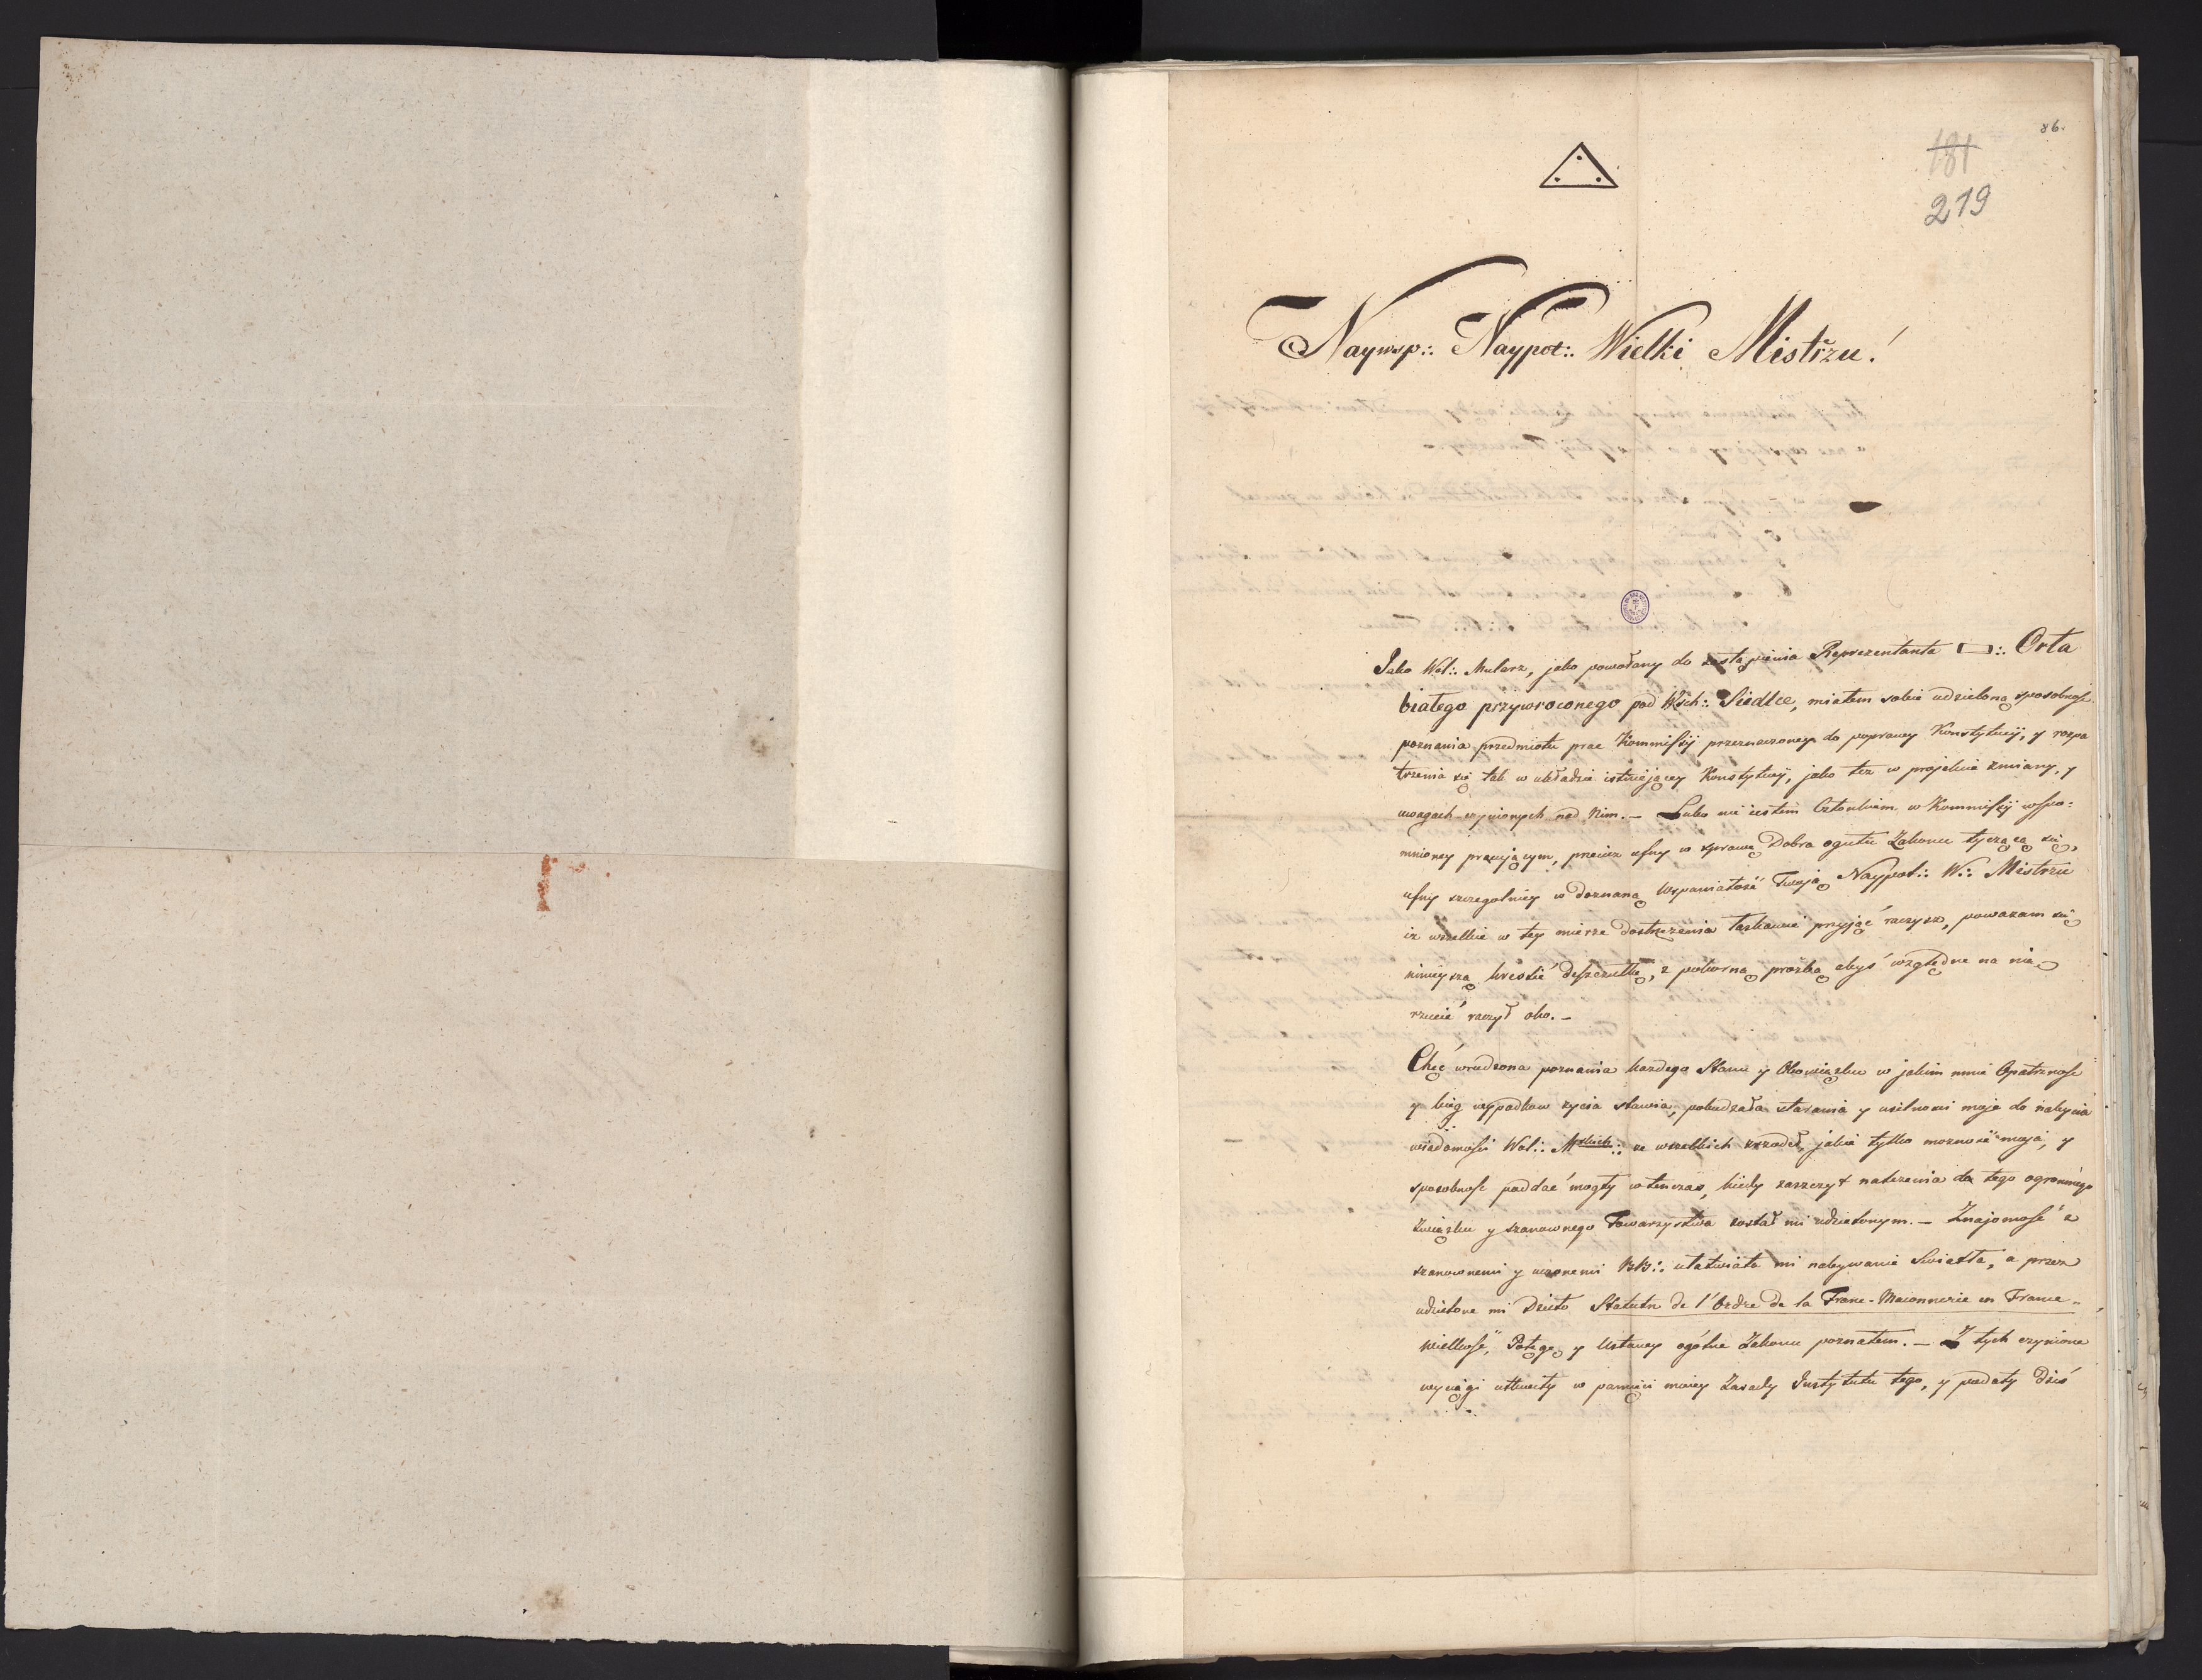 86.
181
219
Naywsp:. Naypot:. Wielki Mistrzu!
Jako Wol:. Mularz, jako powołany do zastąpienia Reprezentanta :. Orła
białego przywroconego pod Wsch:. Siedlce, miałem sobie udzieloną sposobność
poznania przedmiotu prac Kommissyi przeznaczoney do poprawy Konstytucyi, y rozpa
trzenia się tak w układzie istniejącey Konstytucyi, jako tez w projekcie zmiany, y
uwagach czynionych nad Nim. — Lubo nie iestem Członkiem w Kommissyi wspo=
mnioney pracującym, przecież ufny w sprawę Dobra ogułu Zakonu tyczącą się,
ufny szczegolniey w doznaną Wspaniałość Twoją Naypot:. W:. Mistrzu
iz wszelkie w tey mierze dostrzezenia łaskawie przyjąć raczysz, powazam się
ninieyszą kreślić deszczułkę, z pokorną prozbą abyś względne na nię
rzucić raczył oko. —
Chęć wrodzona poznania kazdego Stanu y Obowiązku w jakim mnie Opatrzność
y bieg wypadkow zycia stawia, pobudzała starania y usilności moje do nabycia
wiadomości Wol:. Mskich:. ze wszelkich zrzodeł, jakie tylko mozność moja, y
sposobność poddać mogły wtenczas, kiedy zaszczyt nalezenia do tego ogromnego
Związku y szanownego Towarzystwa został mi udzielonym. — Znajomość z
szanownemi y uczonemi BB:. ułatwiała mi nabywanie Swiatła, a przez
udzielone mi Dzieło Statuts de l'Ordre de la Franc-Maconnerie en France
wielkość, Potęgę y Ustawy ogólne Zakonu poznałem. — Z tych czynione
wyciągi utkwiły w pamięci moiey Zasady Instytutu tego, y podały dziś